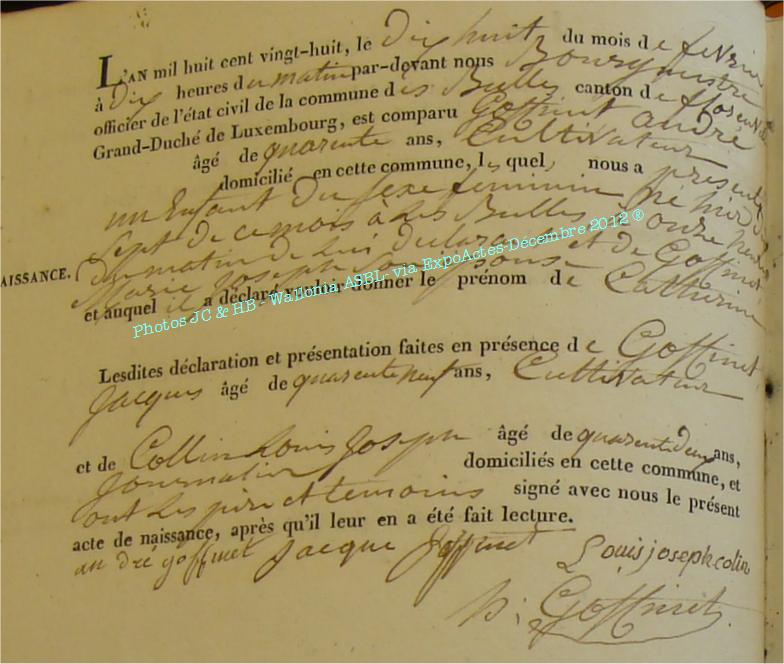 L'AN mil huit cent vingt-huit, le dix huit du mois de fevrier
à dix heures du matin par-devant nous Bourgmestre
officier de l'état civil de la commune des Bulles canton de florenville
Grand-Duché de Luxembourg, est comparu Goffinet andré
âgé de quarente ans, Cultivateur
domicilié en cette commune, lequel, nous a presenté
un Enfant du sexe feminin né hier dix
sept de ce mois à Les Bulles à onze heures
AISSANCE.
du matin de lui declarant et de Goffinet
Marie Joseph son Epouse
et auquel il a déclaré vouloir donner le prénom de Catherine
Photos JC & HB - Wallonia ASBL- via ExpoActes-Décembre 2012 ®
Lesdites déclaration et présentation faites en présence de Goffinet
Jacques âgé de quarente neuf ans, Cultivateur
et de Collin Louis Joseph âgé de quarente deux ans,
Journalier domiciliés en cette commune, et
ont Les père et temoins signé avec nous le présent
acte de naissance, après qu'il leur en a été fait lecture.
an dré goffinet Jacque Goffinet Louis joseph colin
Goffinet